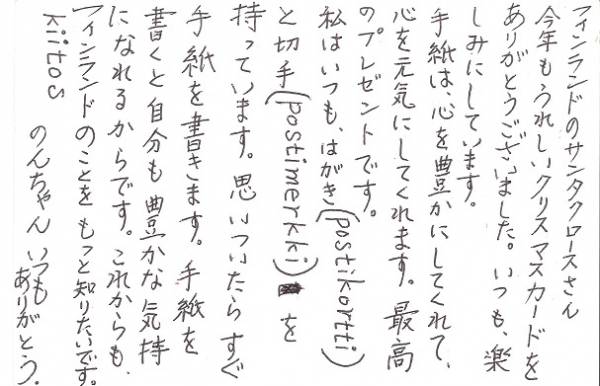 フィンランドのサンタクロースさん
今年もうれしいクリスマスカードを
ありがとうございました。いつも、楽
しみにしています。
手紙は、心を豊かにしてくれて、
心を元気にしてくれます。最高
のプレゼントです。
私はいつも、はがき(postikortti)
と切手(postimerkki)を
持っています。思いついたらすぐ
手紙を書きます。手紙を
書くと自分も豊かな気持
になれるからです。これからも、
フィンランドのことをもっと知りたいです。
kiitos
のんちゃん いつも
ありがとう。